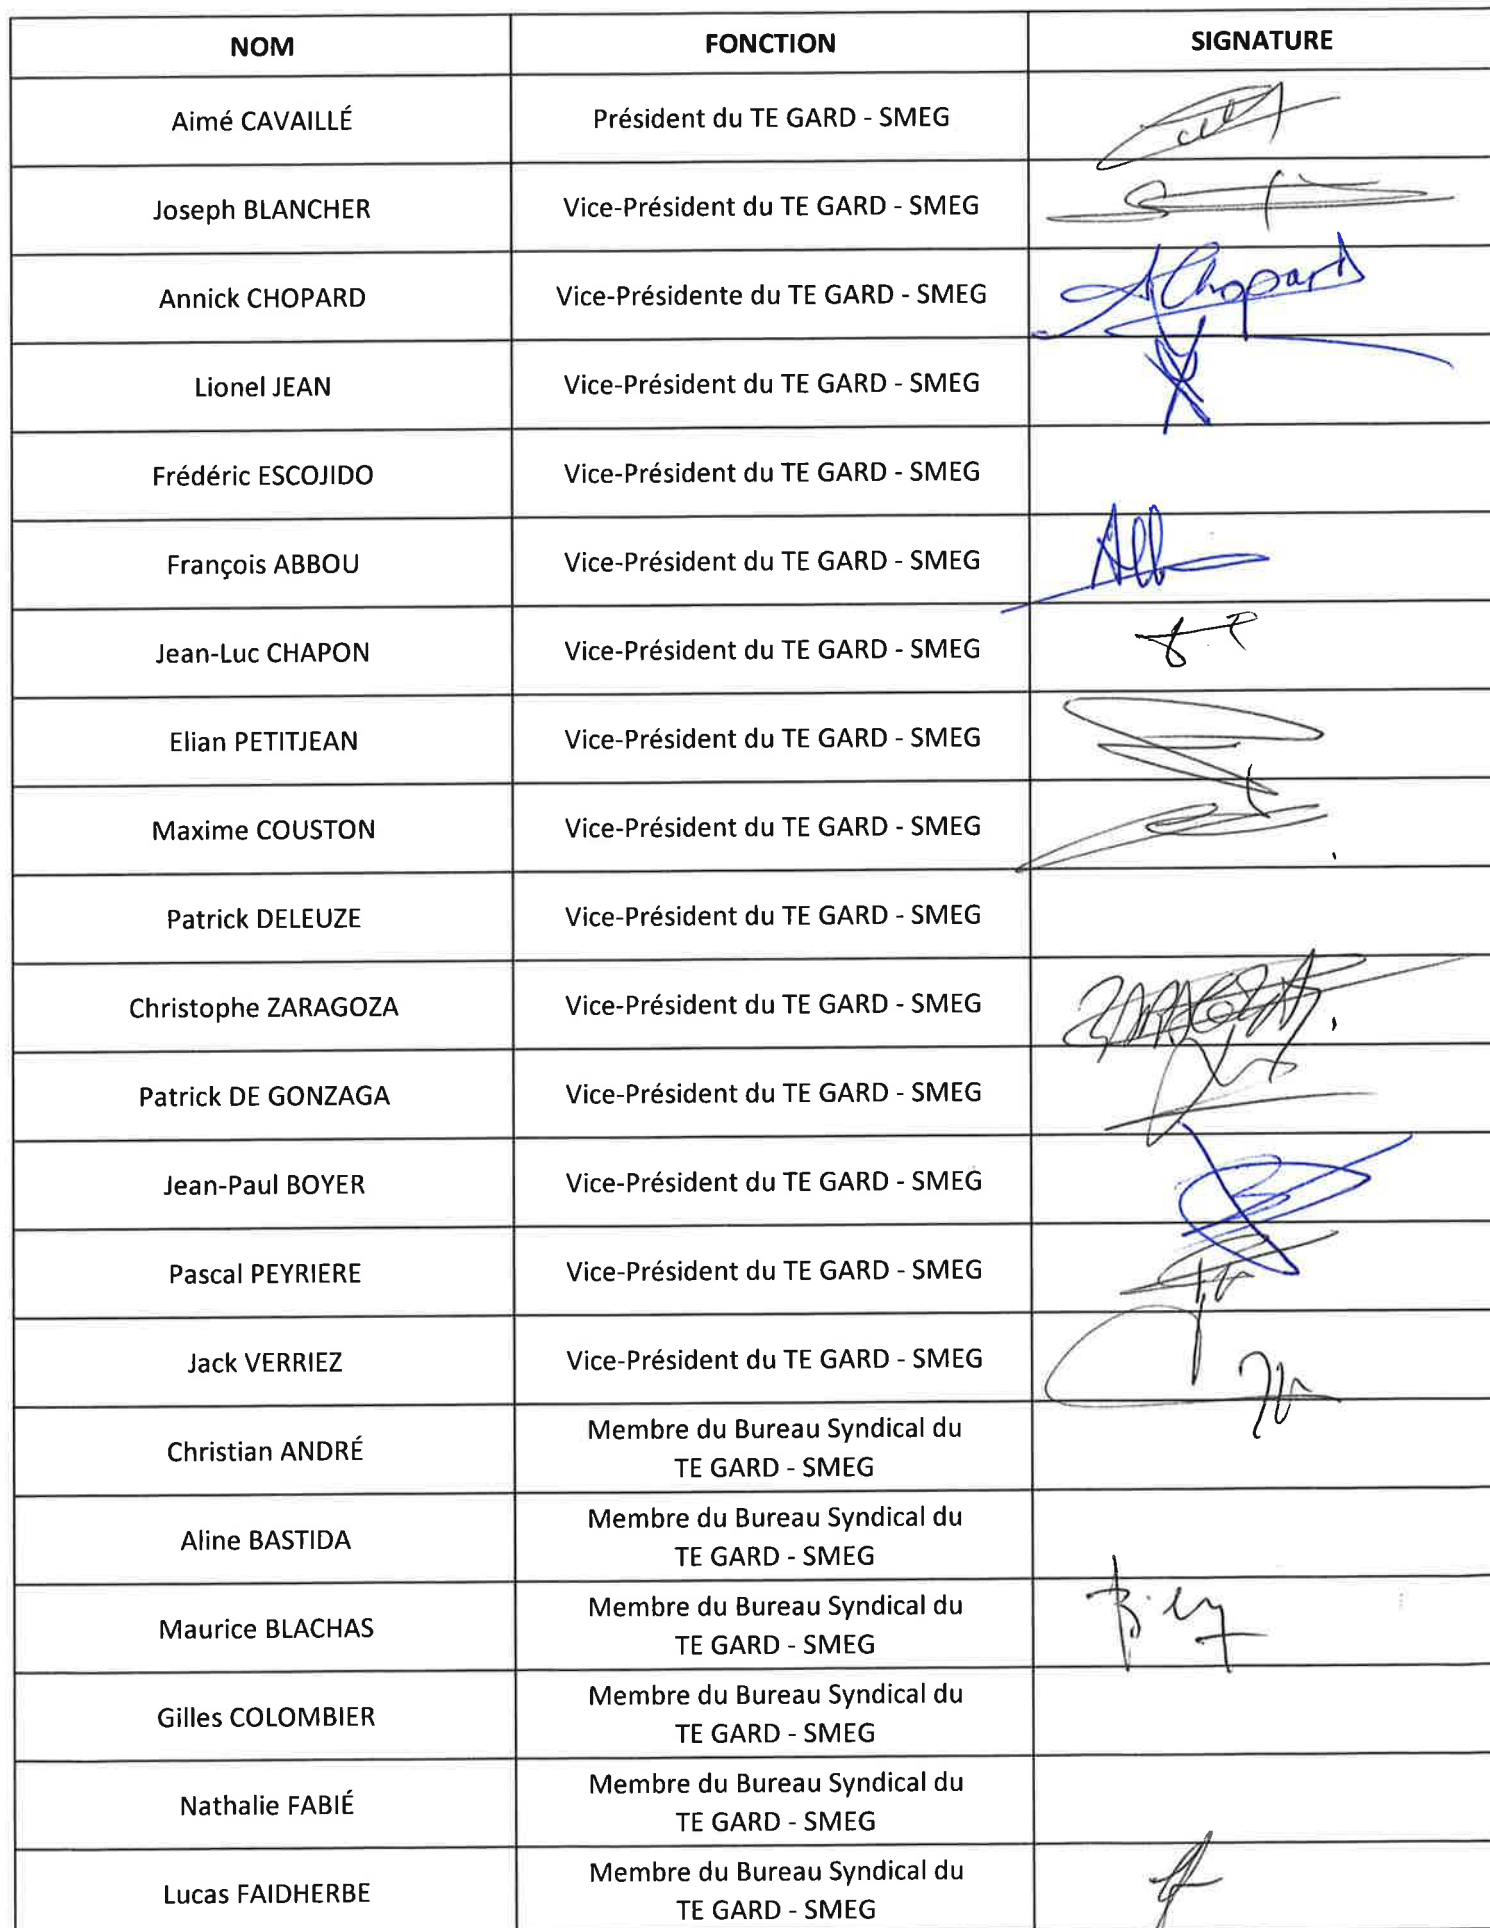 NOM FONCTION SIGNATURE
Aimé CAVAILLÉ Président du TE GARD - SMEG
Joseph BLANCHER Vice-Président du TE GARD - SMEG
Annick CHOPARD Vice-Présidente du TE GARD - SMEG AChopard
Lionel JEAN Vice-Président du TE GARD - SMEG
Frédéric ESCOJIDO Vice-Président du TE GARD - SMEG
François ABBOU Vice-Président du TE GARD - SMEG
Jean-Luc CHAPON Vice-Président du TE GARD - SMEG
Elian PETITJEAN Vice-Président du TE GARD - SMEG
Maxime COUSTON Vice-Président du TE GARD - SMEG
Patrick DELEUZE Vice-Président du TE GARD - SMEG
Christophe ZARAGOZA Vice-Président du TE GARD - SMEG ZARAGOZA
Patrick DE GONZAGA Vice-Président du TE GARD - SMEG
Jean-Paul BOYER Vice-Président du TE GARD - SMEG
Pascal PEYRIERE Vice-Président du TE GARD - SMEG
Jack VERRIEZ Vice-Président du TE GARD - SMEG
Christian ANDRÉ Membre du Bureau Syndical du
TE GARD - SMEG
Aline BASTIDA Membre du Bureau Syndical du
TE GARD - SMEG
Maurice BLACHAS Membre du Bureau Syndical du
TE GARD - SMEG
Gilles COLOMBIER Membre du Bureau Syndical du
TE GARD - SMEG
Nathalie FABIÉ Membre du Bureau Syndical du
TE GARD - SMEG
Lucas FAIDHERBE Membre du Bureau Syndical du
TE GARD - SMEG